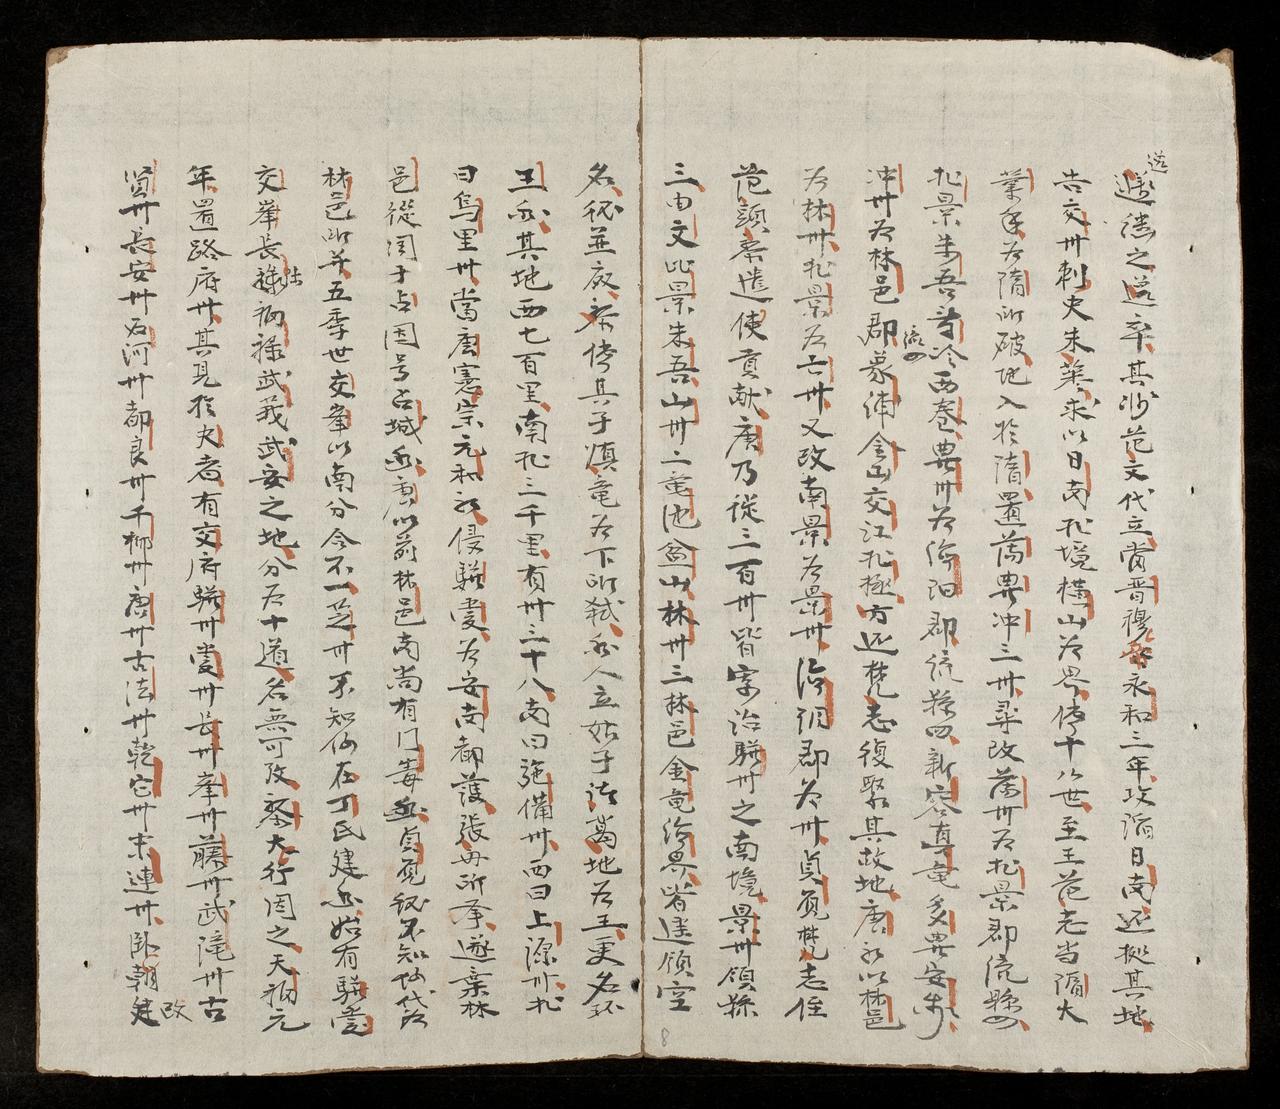 逸
遜継之逸卒其将范文代立当晋穆帝永和三年攻陷日南还抚其地
告交州刺史朱蕃求以日南北境横山为界传十八世至王范志当隋大
業年为隋所破地入於隋置蕩農冲三州尋改蕩州为北景郡統縣四
北景朱吾寿泠西卷農州为海陰郡統縣四新容真竜多農安乐
統四
冲州为林邑郡象浦金山交江北極方还梵志復聚其故地唐初以林邑
为林州北景为亡州又改南景为景州海陰郡为州貞覌梵志侄
范頭黎遣使貢献唐乃從三百州皆寄治驩州之南境景州領縣
三由文北景朱吾山州二竜池盆山林州三林邑金竜海界皆遥領空
名秘並废黎传其子慎竜为下所弑 人立姑子諸葛地为王更名环
王 其地西七百里南北三千里有州三十八南曰施備州西曰上源州北
曰烏里州當唐憲宗元和初侵驩愛为安南都護張丹所擊遂棄林
邑從国于占因号占城 唐以前林邑南尚有门毒 貞覌秘不知何代为
林邑所并五季世交峯以南分合不一芝州不知何在丁氏建 始有驩愛
交峯長陸
祿福祿武莪武安之地分为十道名無可攷黎大行因之天福元
年置路府州其見於史者有交府驩州愛州長州峯州藤州武瀧州古
賢州長安州石河州都良州千柳州唐州古法州乾它州末連州卧朝建
改
8